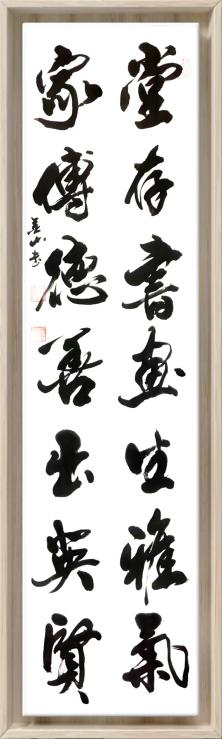 堂存書畫生雅氣
家傳德善出英賢